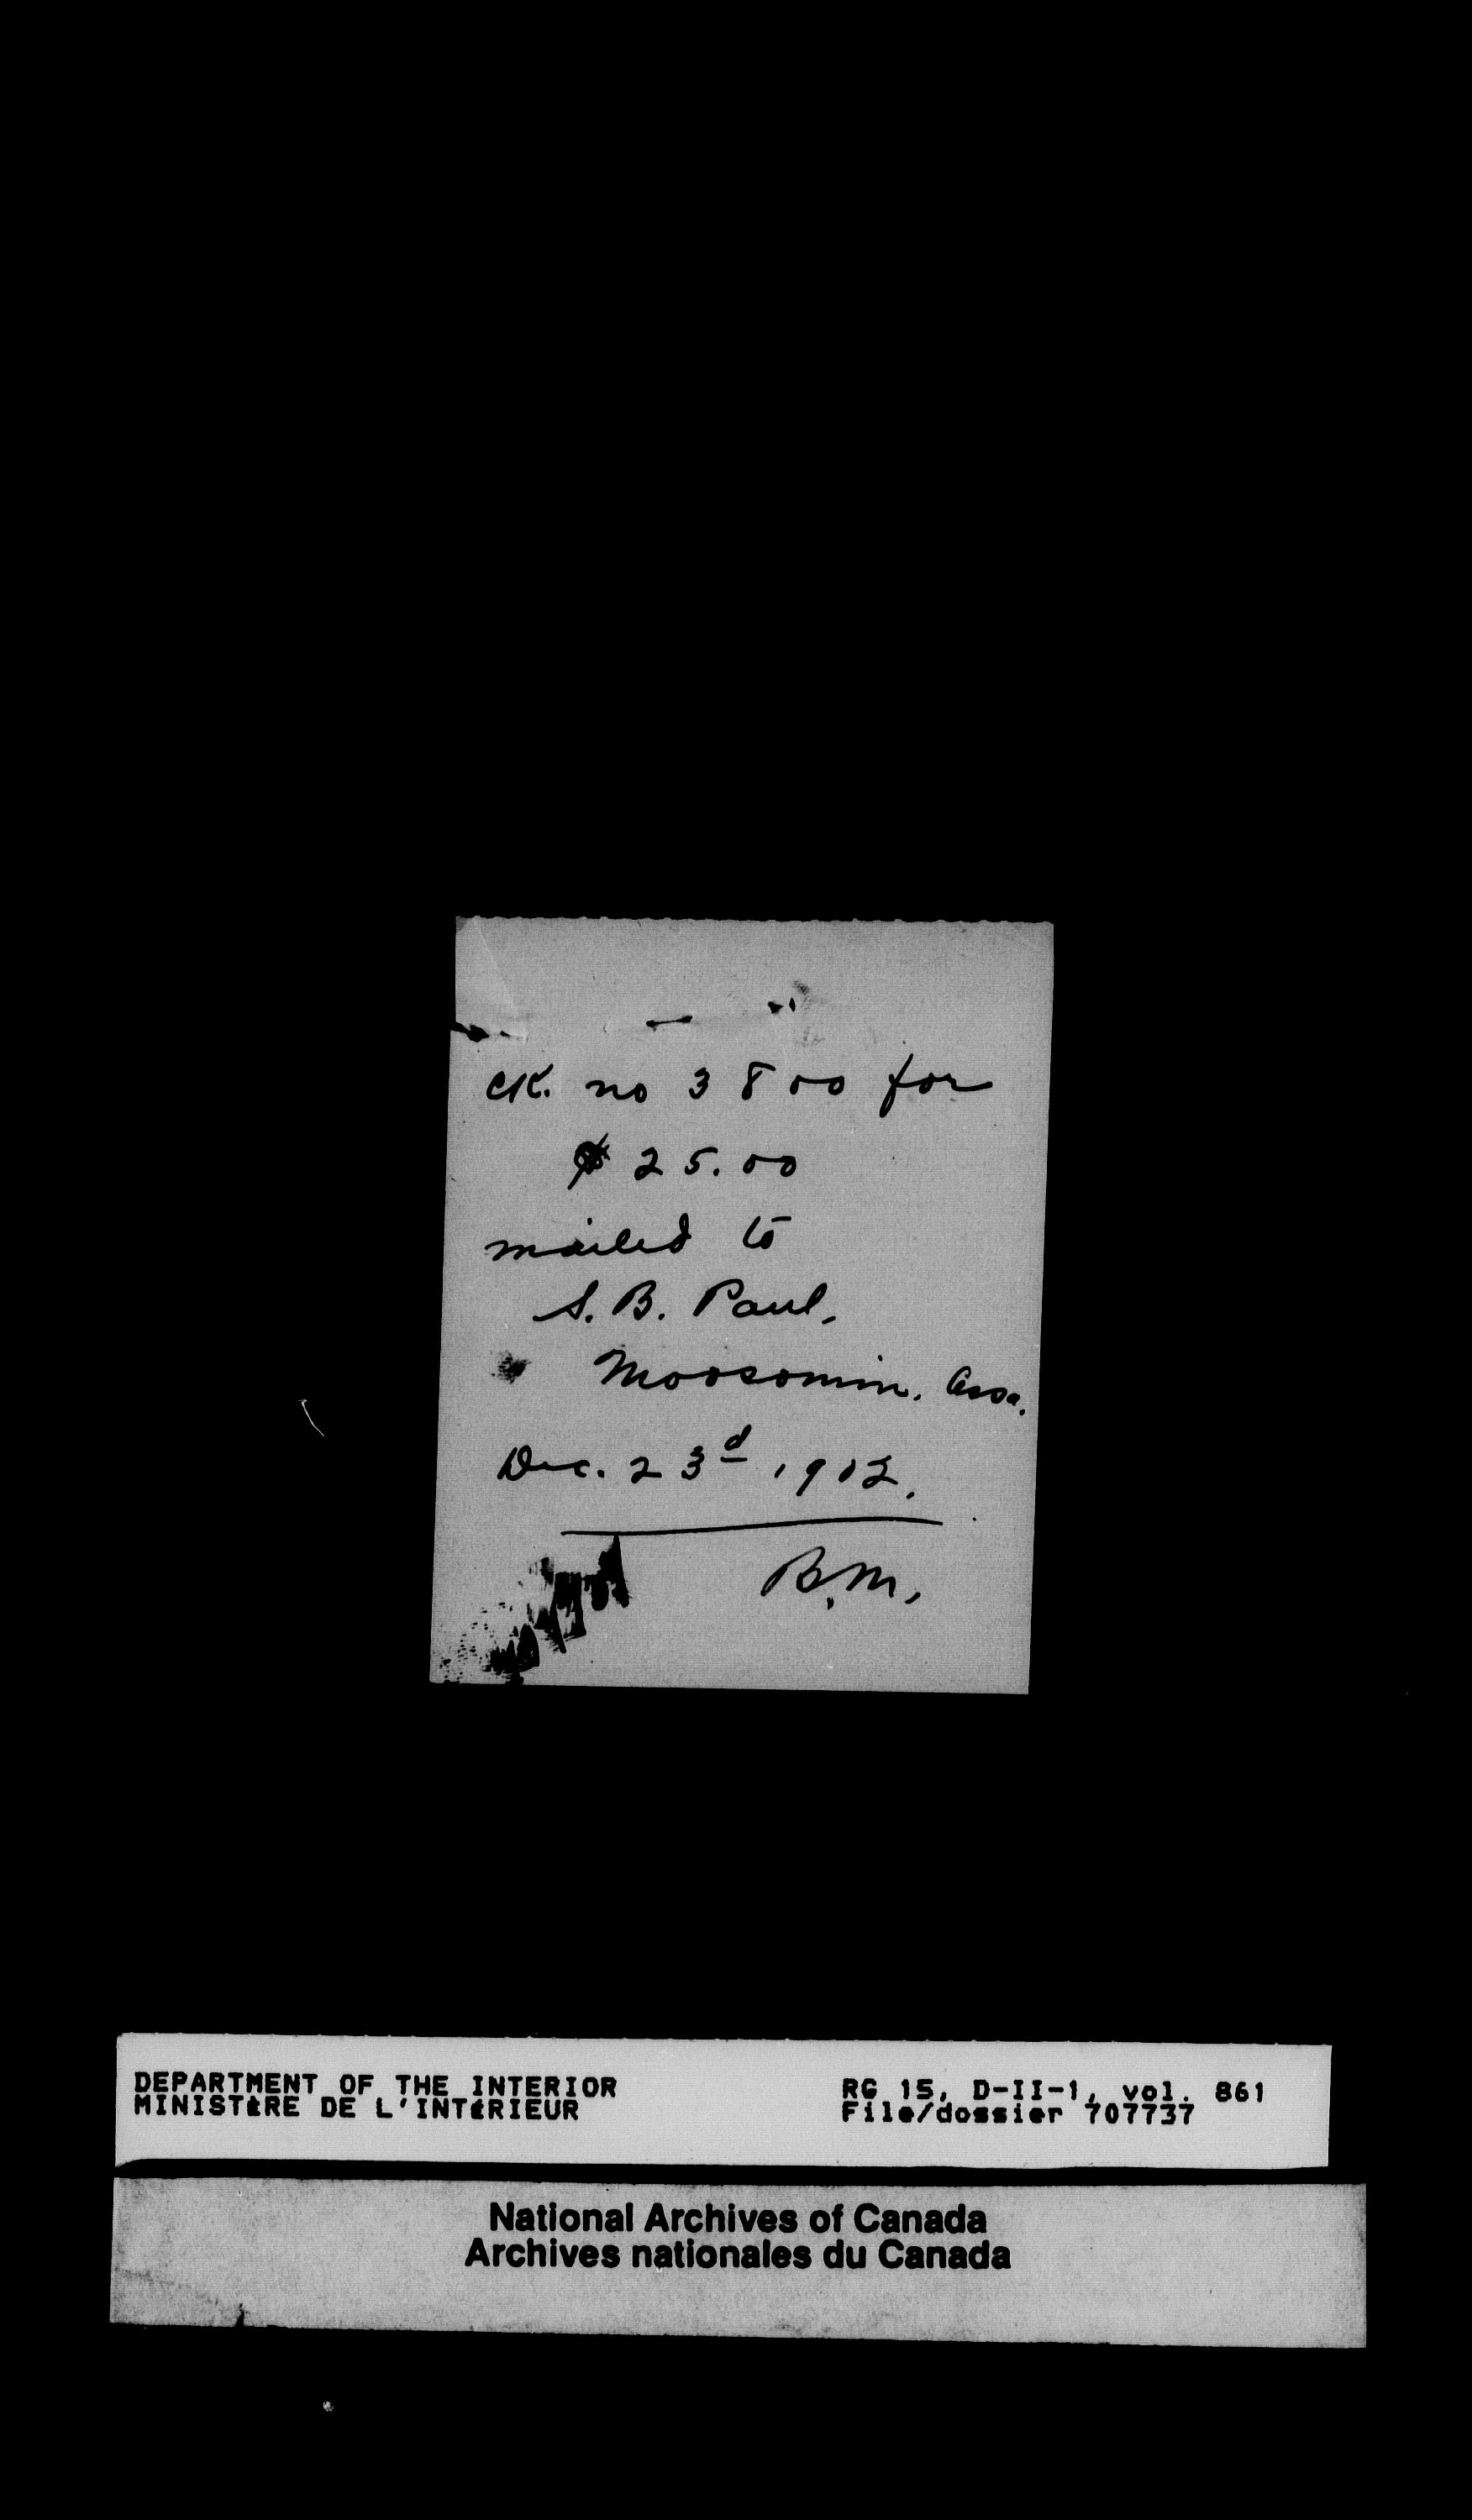 CK. no 3800 for
$25.00
mailed to
S. B. Paul,
Moosomin. Assa.
Dec. 23d 1902.
B.M.
DEPARTMENT OF THE INTERIOR
MINISTÈRE DE L'INTÉRIEUR
RG 15, D-II-1, vol. 861
File/dossier 707737
National Archives of Canada
Archives nationales du Canada